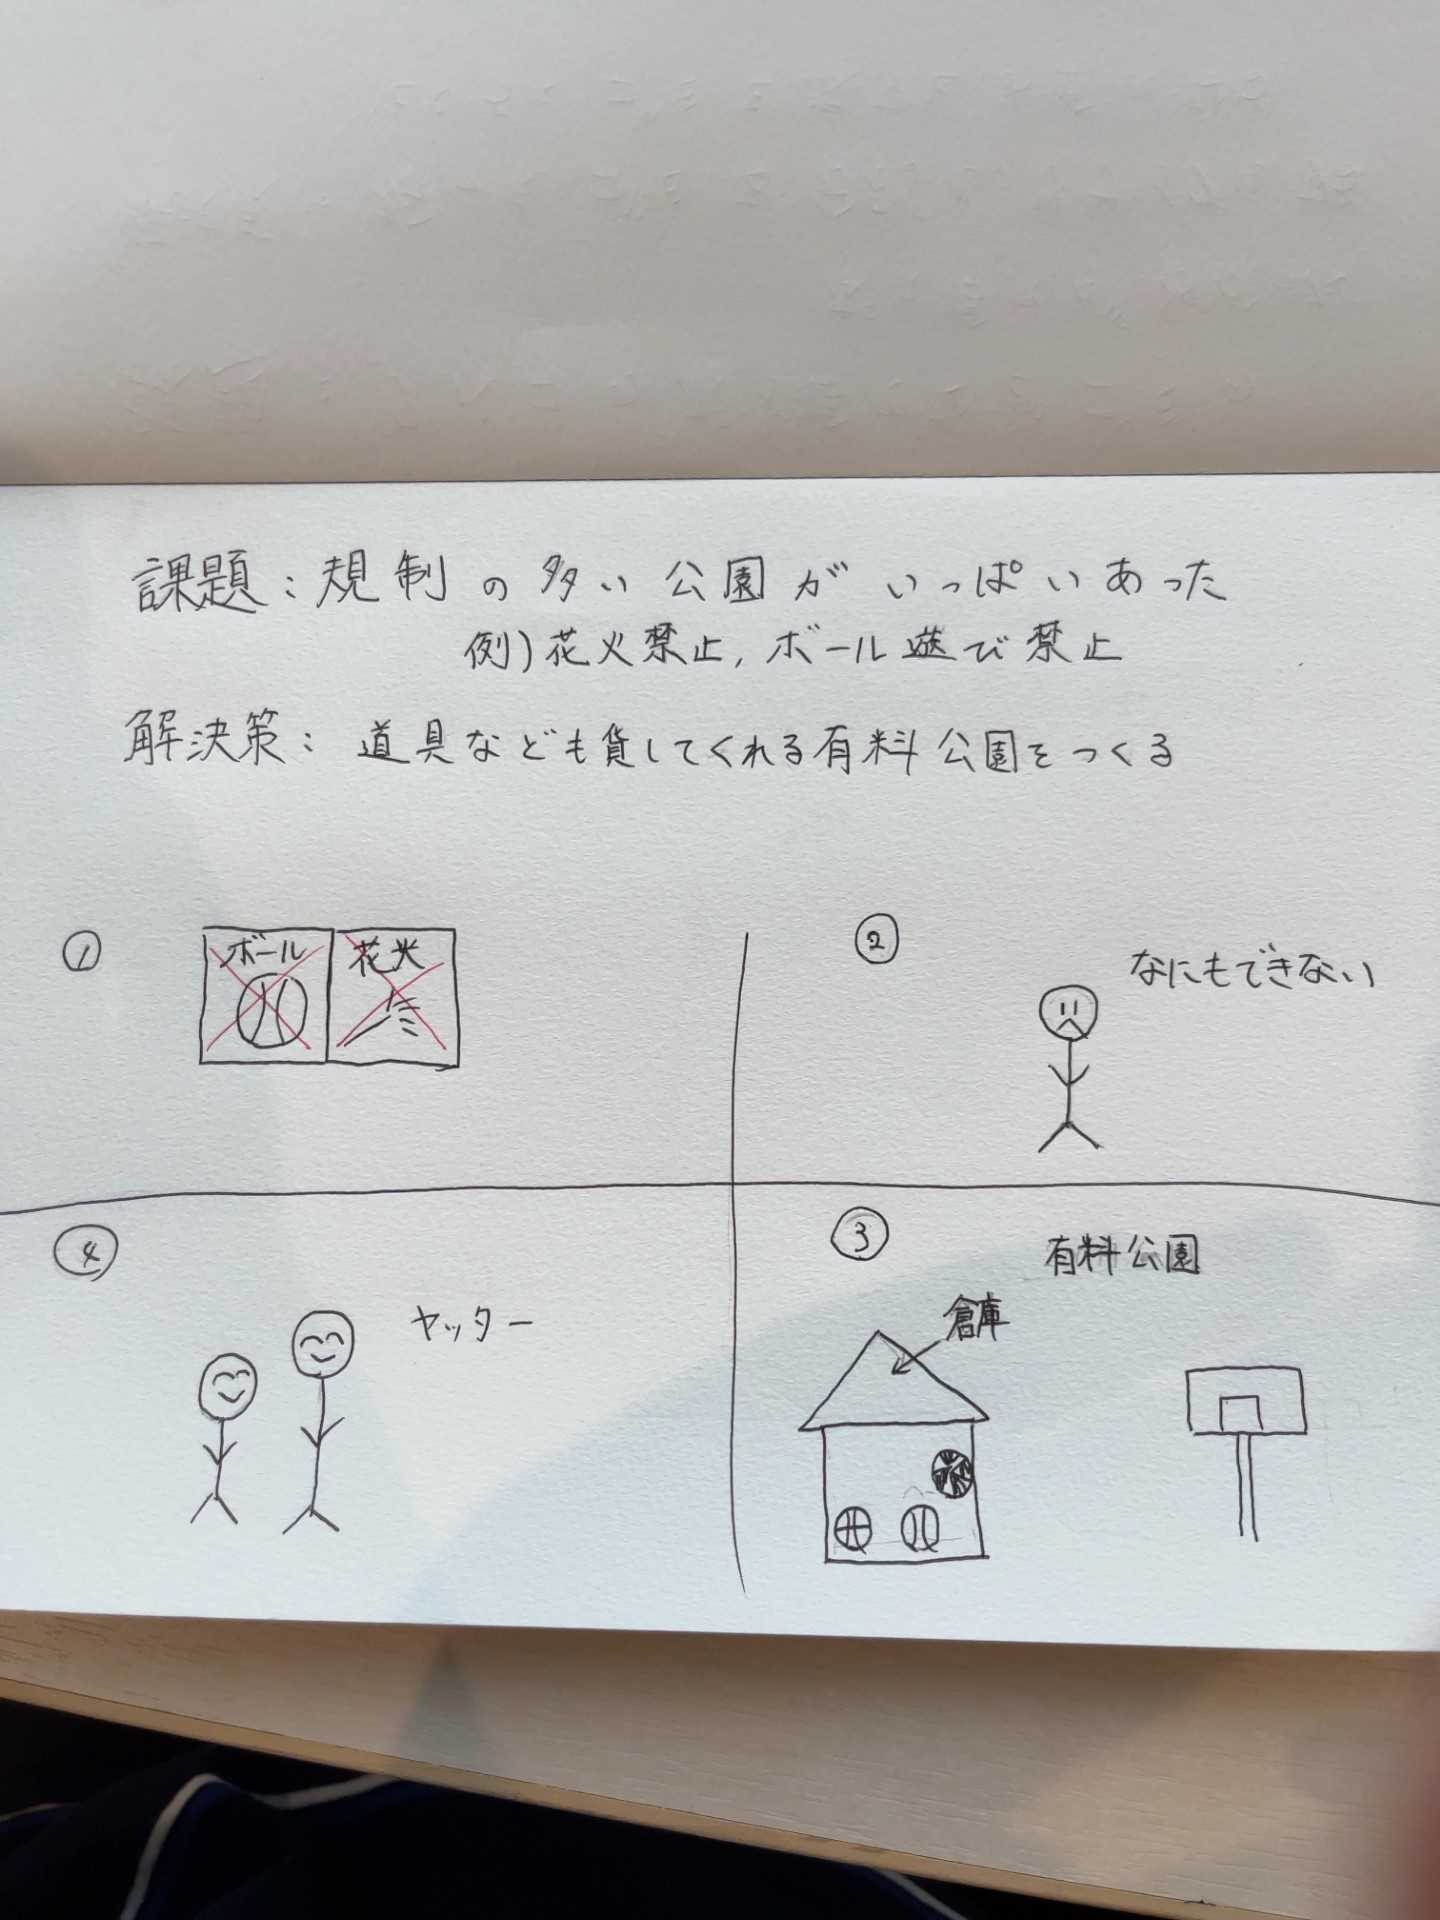 課題：規制の多い公園がいっぱいあった
例)花火禁止, ボール遊び禁止
解決策：道具なども貸してくれる有料公園をつくる
①
ボール 花火
②
なにもできない
③
有料公園
倉庫
④
ヤッター